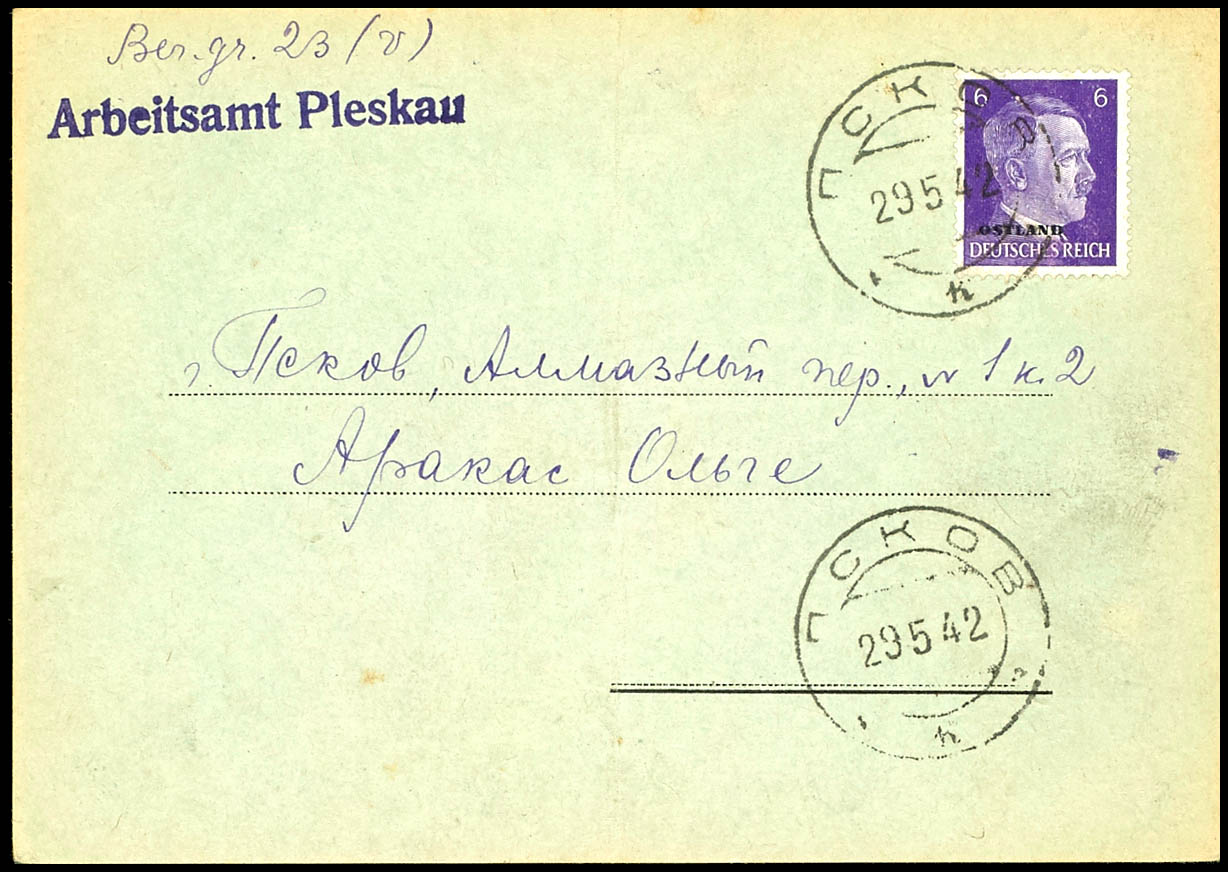 Ber.gr. 23 (v)
Arbeitsamt Pleskau
ПСКОВ
29 5 42
к
6 6
OSTLAND
DEUTSCHES REICH
г. Псков, Алмазный пер., № 1 к. 2
Аракас Ольге
ПСКОВ
29 5 42
к